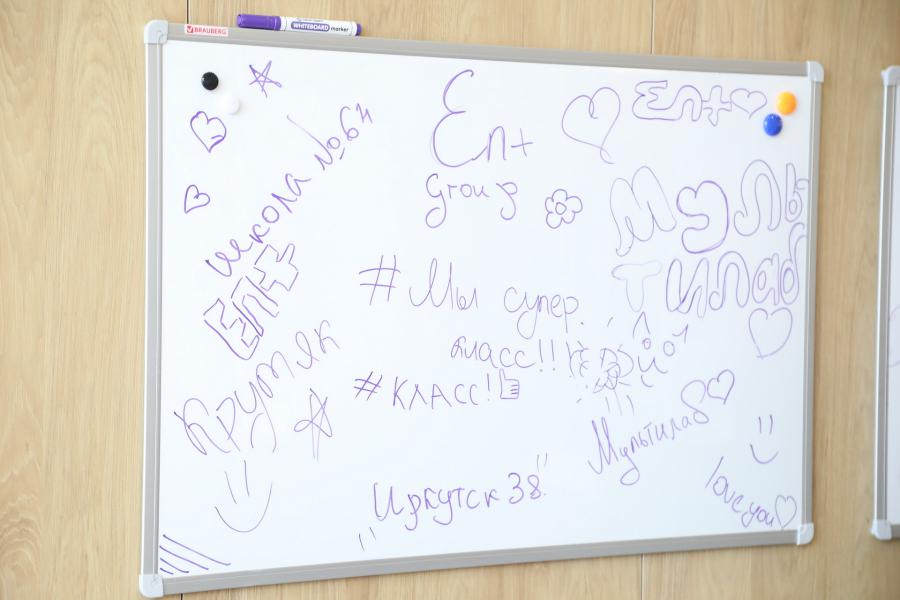 BRAUBERG
WHITEBOARD marker
школа №64
En+
Крутяк
En+
Group
#Мы супер.
класс!!
#КЛАСС!
"Иркутск 38"
En+
Муль
тилаб
Мультилаб
love you